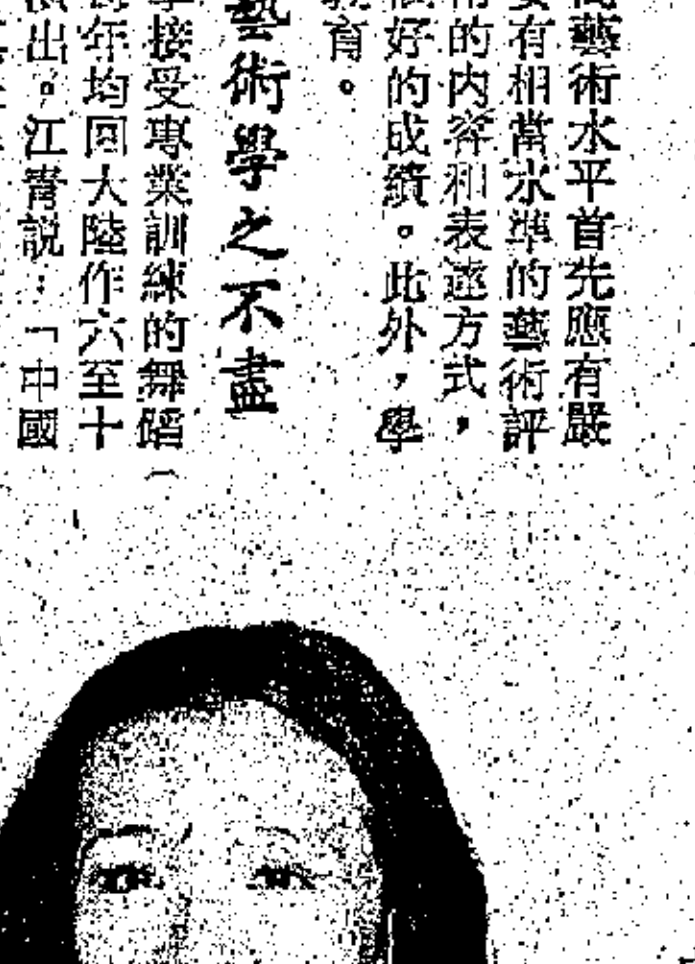 藝術水平首先應有嚴
有相當水準的藝術評
的内容和表達方式，
好的成績。此外，學
育。
藝術學之不盡
接受專業訓練的舞蹈（
年均回大陸作六至十
出。江青説：「中國